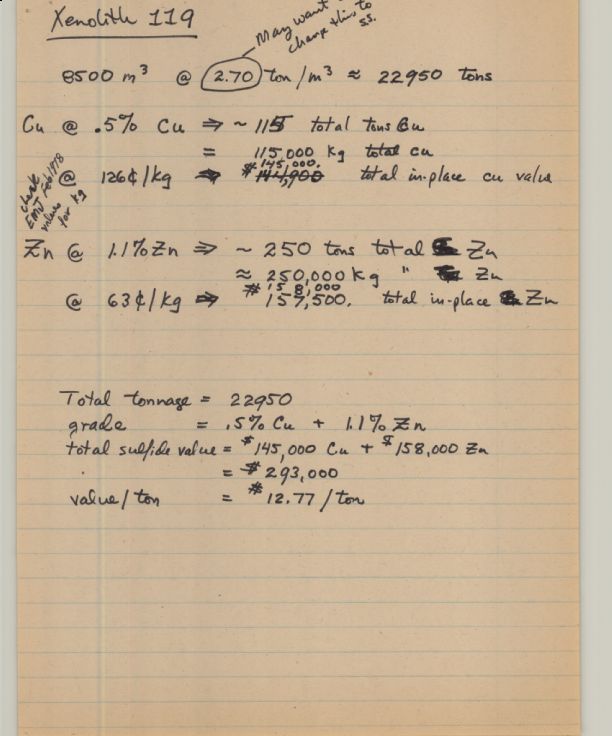 Xenolith 119
May want to
change this to
ss.
8500 m³ @ 2.70 ton/m³ ≈ 22950 tons
Cu @ .5% Cu ⇒ ~ 115 total tons Cu
= 115,000 kg total cu
$145,000.
@ 126¢/kg ⇒ $144,900 total in-place cu value
check
EMJ Feb 1978
values
for kg
Zn @ 1.1% Zn ⇒ ~ 250 tons total Zn
≈ 250,000 kg " Zn
$158,000
@ 63¢/kg ⇒ 157,500. total in-place Zn
Total tonnage = 22950
grade = .5% Cu + 1.1% Zn
total sulfide value = $145,000 Cu + $158,000 Zn
= $293,000
value/ton = $12.77/ton